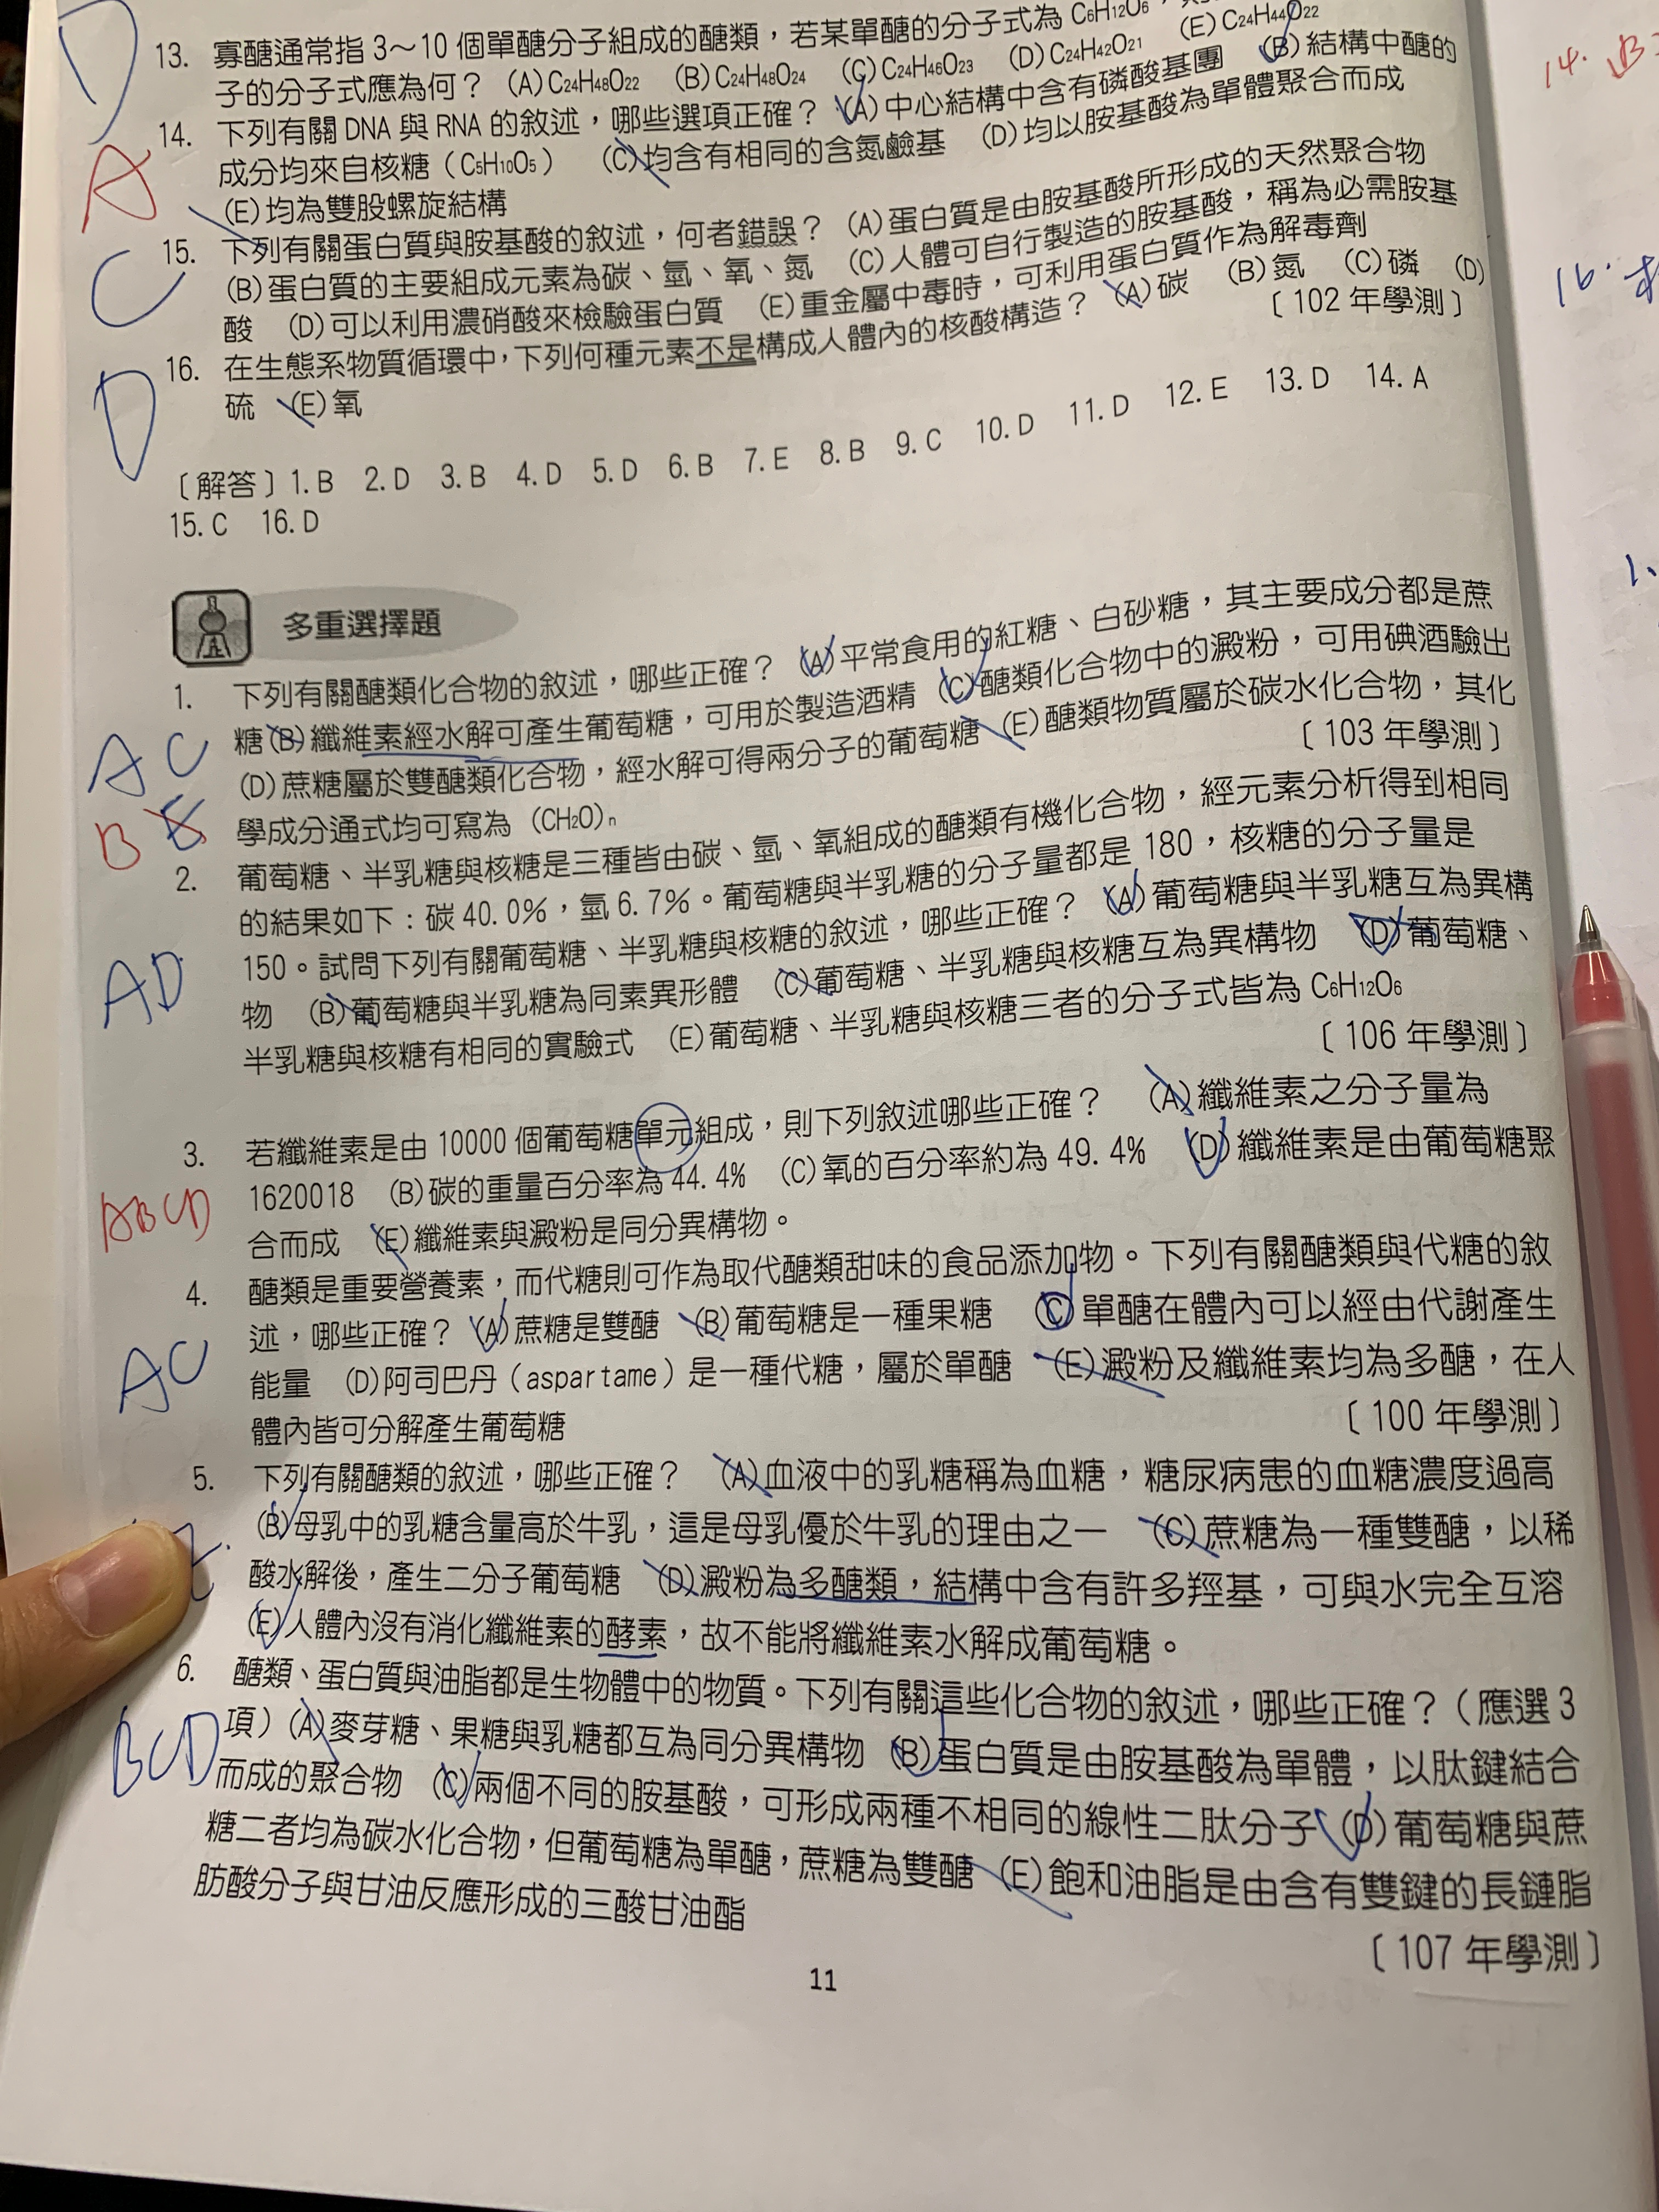 13. 寡醣通常指 3～10 個單醣分子組成的醣類，若某單醣的分子式為 C6H12O6，
子的分子式應為何？ (A)C24H48O22 (B)C24H48O24 (C)C24H46O23 (D)C24H42O21 (E)C24H44O22
14. 下列有關 DNA 與 RNA 的敘述，哪些選項正確？ (A)中心結構中含有磷酸基團 (B)結構中醣的
成分均來自核糖（C5H10O5） (C)均含有相同的含氮鹼基 (D)均以胺基酸為單體聚合而成
(E)均為雙股螺旋結構
15. 下列有關蛋白質與胺基酸的敘述，何者錯誤？ (A)蛋白質是由胺基酸所形成的天然聚合物
(B)蛋白質的主要組成元素為碳、氫、氧、氮 (C)人體可自行製造的胺基酸，稱為必需胺基
酸 (D)可以利用濃硝酸來檢驗蛋白質 (E)重金屬中毒時，可利用蛋白質作為解毒劑
16. 在生態系物質循環中，下列何種元素不是構成人體內的核酸構造？ (A)碳 (B)氮 (C)磷 (D)
硫 (E)氧 〔102 年學測〕
〔解答〕1.B 2.D 3.B 4.D 5.D 6.B 7.E 8.B 9.C 10.D 11.D 12.E 13.D 14.A
15.C 16.D
多重選擇題
1. 下列有關醣類化合物的敘述，哪些正確？ (A)平常食用的紅糖、白砂糖，其主要成分都是蔗
糖(B)纖維素經水解可產生葡萄糖，可用於製造酒精 (C)醣類化合物中的澱粉，可用碘酒驗出
(D)蔗糖屬於雙醣類化合物，經水解可得兩分子的葡萄糖 (E)醣類物質屬於碳水化合物，其化
學成分通式均可寫為（CH2O）n 〔103 年學測〕
2. 葡萄糖、半乳糖與核糖是三種皆由碳、氫、氧組成的醣類有機化合物，經元素分析得到相同
的結果如下：碳 40.0%，氫 6.7%。葡萄糖與半乳糖的分子量都是 180，核糖的分子量是
150。試問下列有關葡萄糖、半乳糖與核糖的敘述，哪些正確？ (A)葡萄糖與半乳糖互為異構
物 (B)葡萄糖與半乳糖為同素異形體 (C)葡萄糖、半乳糖與核糖互為異構物 (D)葡萄糖、
半乳糖與核糖有相同的實驗式 (E)葡萄糖、半乳糖與核糖三者的分子式皆為 C6H12O6
〔106 年學測〕
3. 若纖維素是由 10000 個葡萄糖單元組成，則下列敘述哪些正確？ (A)纖維素之分子量為
1620018 (B)碳的重量百分率為 44.4% (C)氧的百分率約為 49.4% (D)纖維素是由葡萄糖聚
合而成 (E)纖維素與澱粉是同分異構物。
4. 醣類是重要營養素，而代糖則可作為取代醣類甜味的食品添加物。下列有關醣類與代糖的敘
述，哪些正確？ (A)蔗糖是雙醣 (B)葡萄糖是一種果糖 (C)單醣在體內可以經由代謝產生
能量 (D)阿司巴丹（aspartame）是一種代糖，屬於單醣 (E)澱粉及纖維素均為多醣，在人
體內皆可分解產生葡萄糖 〔100 年學測〕
5. 下列有關醣類的敘述，哪些正確？ (A)血液中的乳糖稱為血糖，糖尿病患的血糖濃度過高
(B)母乳中的乳糖含量高於牛乳，這是母乳優於牛乳的理由之一 (C)蔗糖為一種雙醣，以稀
酸水解後，產生二分子葡萄糖 (D)澱粉為多醣類，結構中含有許多羥基，可與水完全互溶
(E)人體內沒有消化纖維素的酵素，故不能將纖維素水解成葡萄糖。
6. 醣類、蛋白質與油脂都是生物體中的物質。下列有關這些化合物的敘述，哪些正確？（應選 3
項）(A)麥芽糖、果糖與乳糖都互為同分異構物 (B)蛋白質是由胺基酸為單體，以肽鍵結合
而成的聚合物 (C)兩個不同的胺基酸，可形成兩種不相同的線性二肽分子 (D)葡萄糖與蔗
糖二者均為碳水化合物，但葡萄糖為單醣，蔗糖為雙醣 (E)飽和油脂是由含有雙鍵的長鏈脂
肪酸分子與甘油反應形成的三酸甘油酯
〔107 年學測〕
11
D
A
C
D
AC
B E
AD
ABCD
AC
BCD
14.
16.
1.